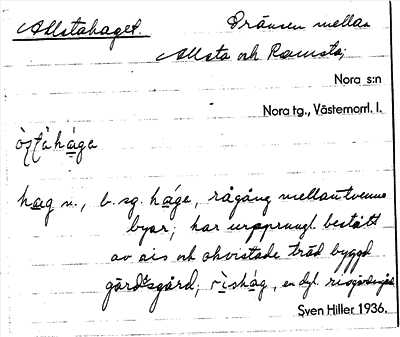 Allstahaget. Gränsen mellan
Allsta och Ramsta;
Nora s:n
Nora tg., Västernorrl. l.
hag n., b. sg. hágɛ, rågång mellan tvenne
byar; har ursprungl. bestått
av ris och okvistade träd byggd
gärdsgård; rìshág, en dyl. risgärdsgård.
Sven Hiller 1936.